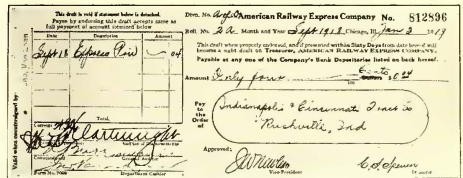 This draft is void if statement below is detached.
Payee by endorsing this draft accepts same as
full payment of account itemized below
Date Description Amount
Sept 18 Express Rev 04
Total,
Cartwright
Form No. 7066 Department Cashier
Valid when countersigned by:
Divn. No. American Railway Express Company No. 812896
Roll No. 22 Month and Year Sept 1918 Chicago, Ill. Jan 2 1919
This draft when properly endorsed, and if presented within Sixty Days from date hereof will
become a sight draft on Treasurer, AMERICAN RAILWAY EXPRESS COMPANY.
Payable at any one of the Company's Bank Depositories listed on back hereof.
Amount Only four Cents $0.04
Pay
to the
Order
of
Indianapolis & Cincinnati
Rushville, Ind
Approved:
Vice-President